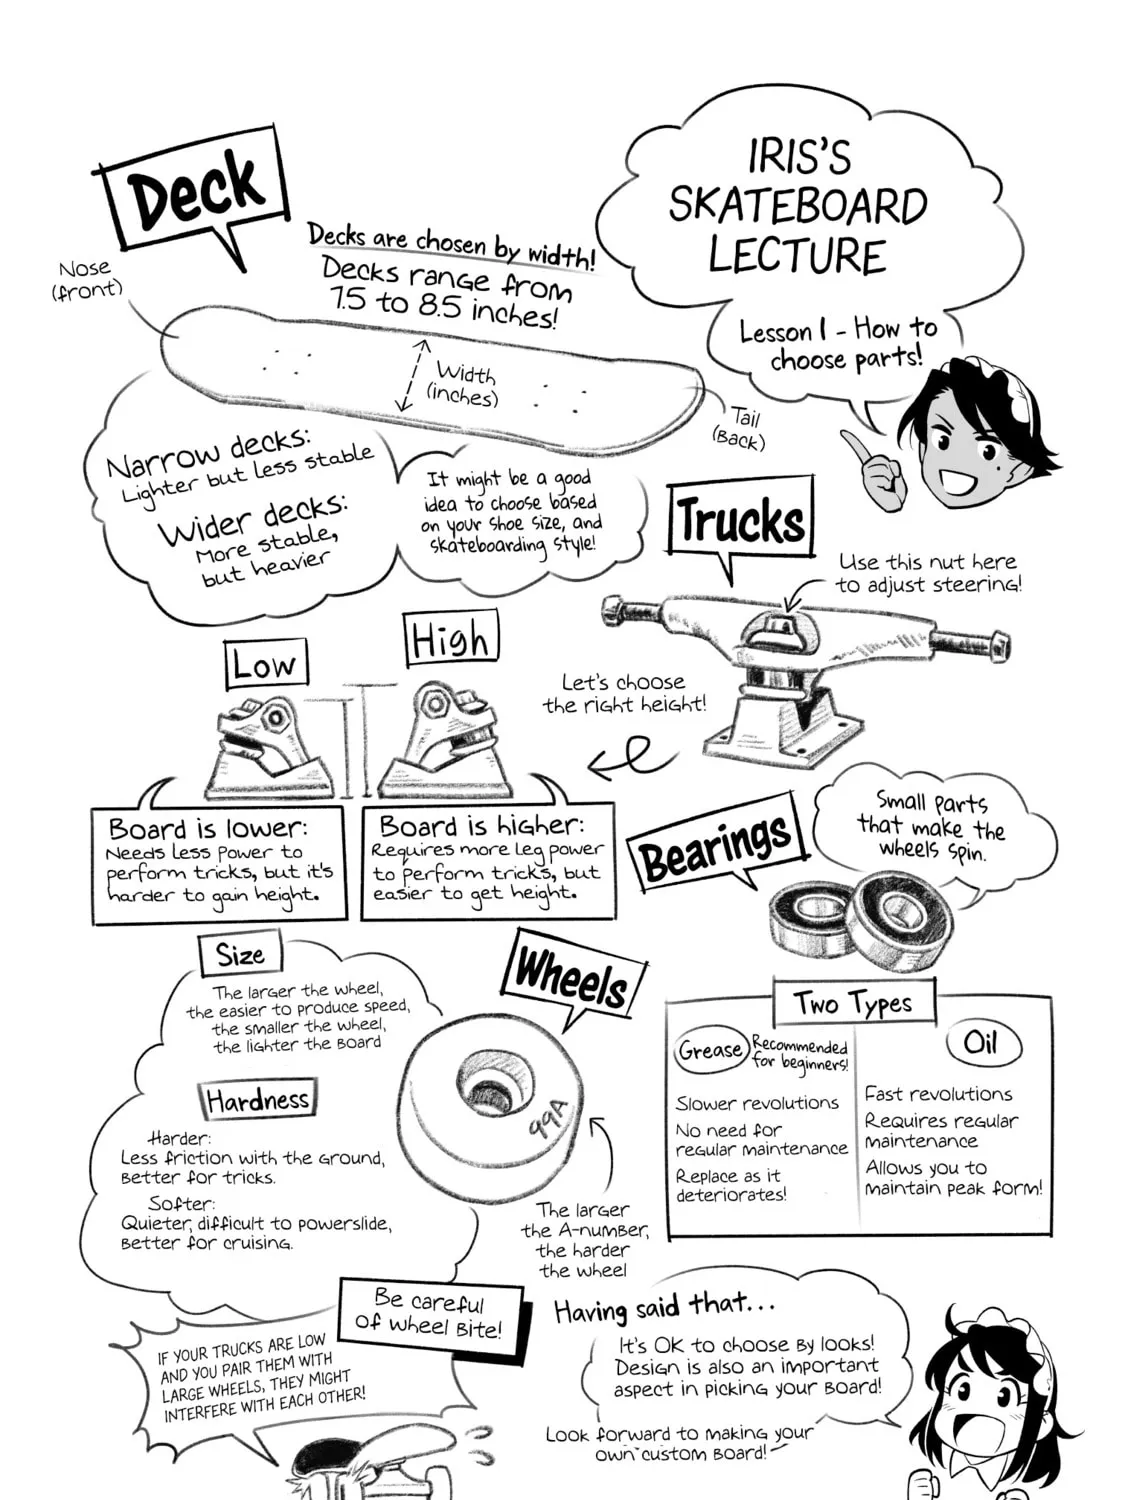 IRIS'S
SKATEBOARD
LECTURE
Lesson 1 - How to
choose parts!
Deck
Nose
(front)
Decks are chosen by width!
Decks range from
7.5 to 8.5 inches!
Width
(inches)
Tail
(Back)
Narrow decks:
Lighter but less stable
Wider decks:
More stable,
but heavier
It might be a good
idea to choose based
on your shoe size, and
skateboarding style!
Trucks
Use this nut here
to adjust steering!
Let's choose
the right height!
Low
High
Board is lower:
Needs less power to
perform tricks, but it's
harder to gain height.
Board is higher:
Requires more leg power
to perform tricks, but
easier to get height.
Bearings
Small parts
that make the
wheels spin.
Two Types
Grease
Recommended
for beginners!
Slower revolutions
No need for
regular maintenance
Replace as it
deteriorates!
Oil
Fast revolutions
Requires regular
maintenance
Allows you to
maintain peak form!
Wheels
Size
The larger the wheel,
the easier to produce speed,
the smaller the wheel,
the lighter the board
Hardness
Harder:
Less friction with the ground,
better for tricks.
Softer:
Quieter, difficult to powerslide,
better for cruising.
99A
The larger
the A-number,
the harder
the wheel
Be careful
of wheel bite!
IF YOUR TRUCKS ARE LOW
AND YOU PAIR THEM WITH
LARGE WHEELS, THEY MIGHT
INTERFERE WITH EACH OTHER!
Having said that...
It's OK to choose by looks!
Design is also an important
aspect in picking your board!
Look forward to making your
own custom board!